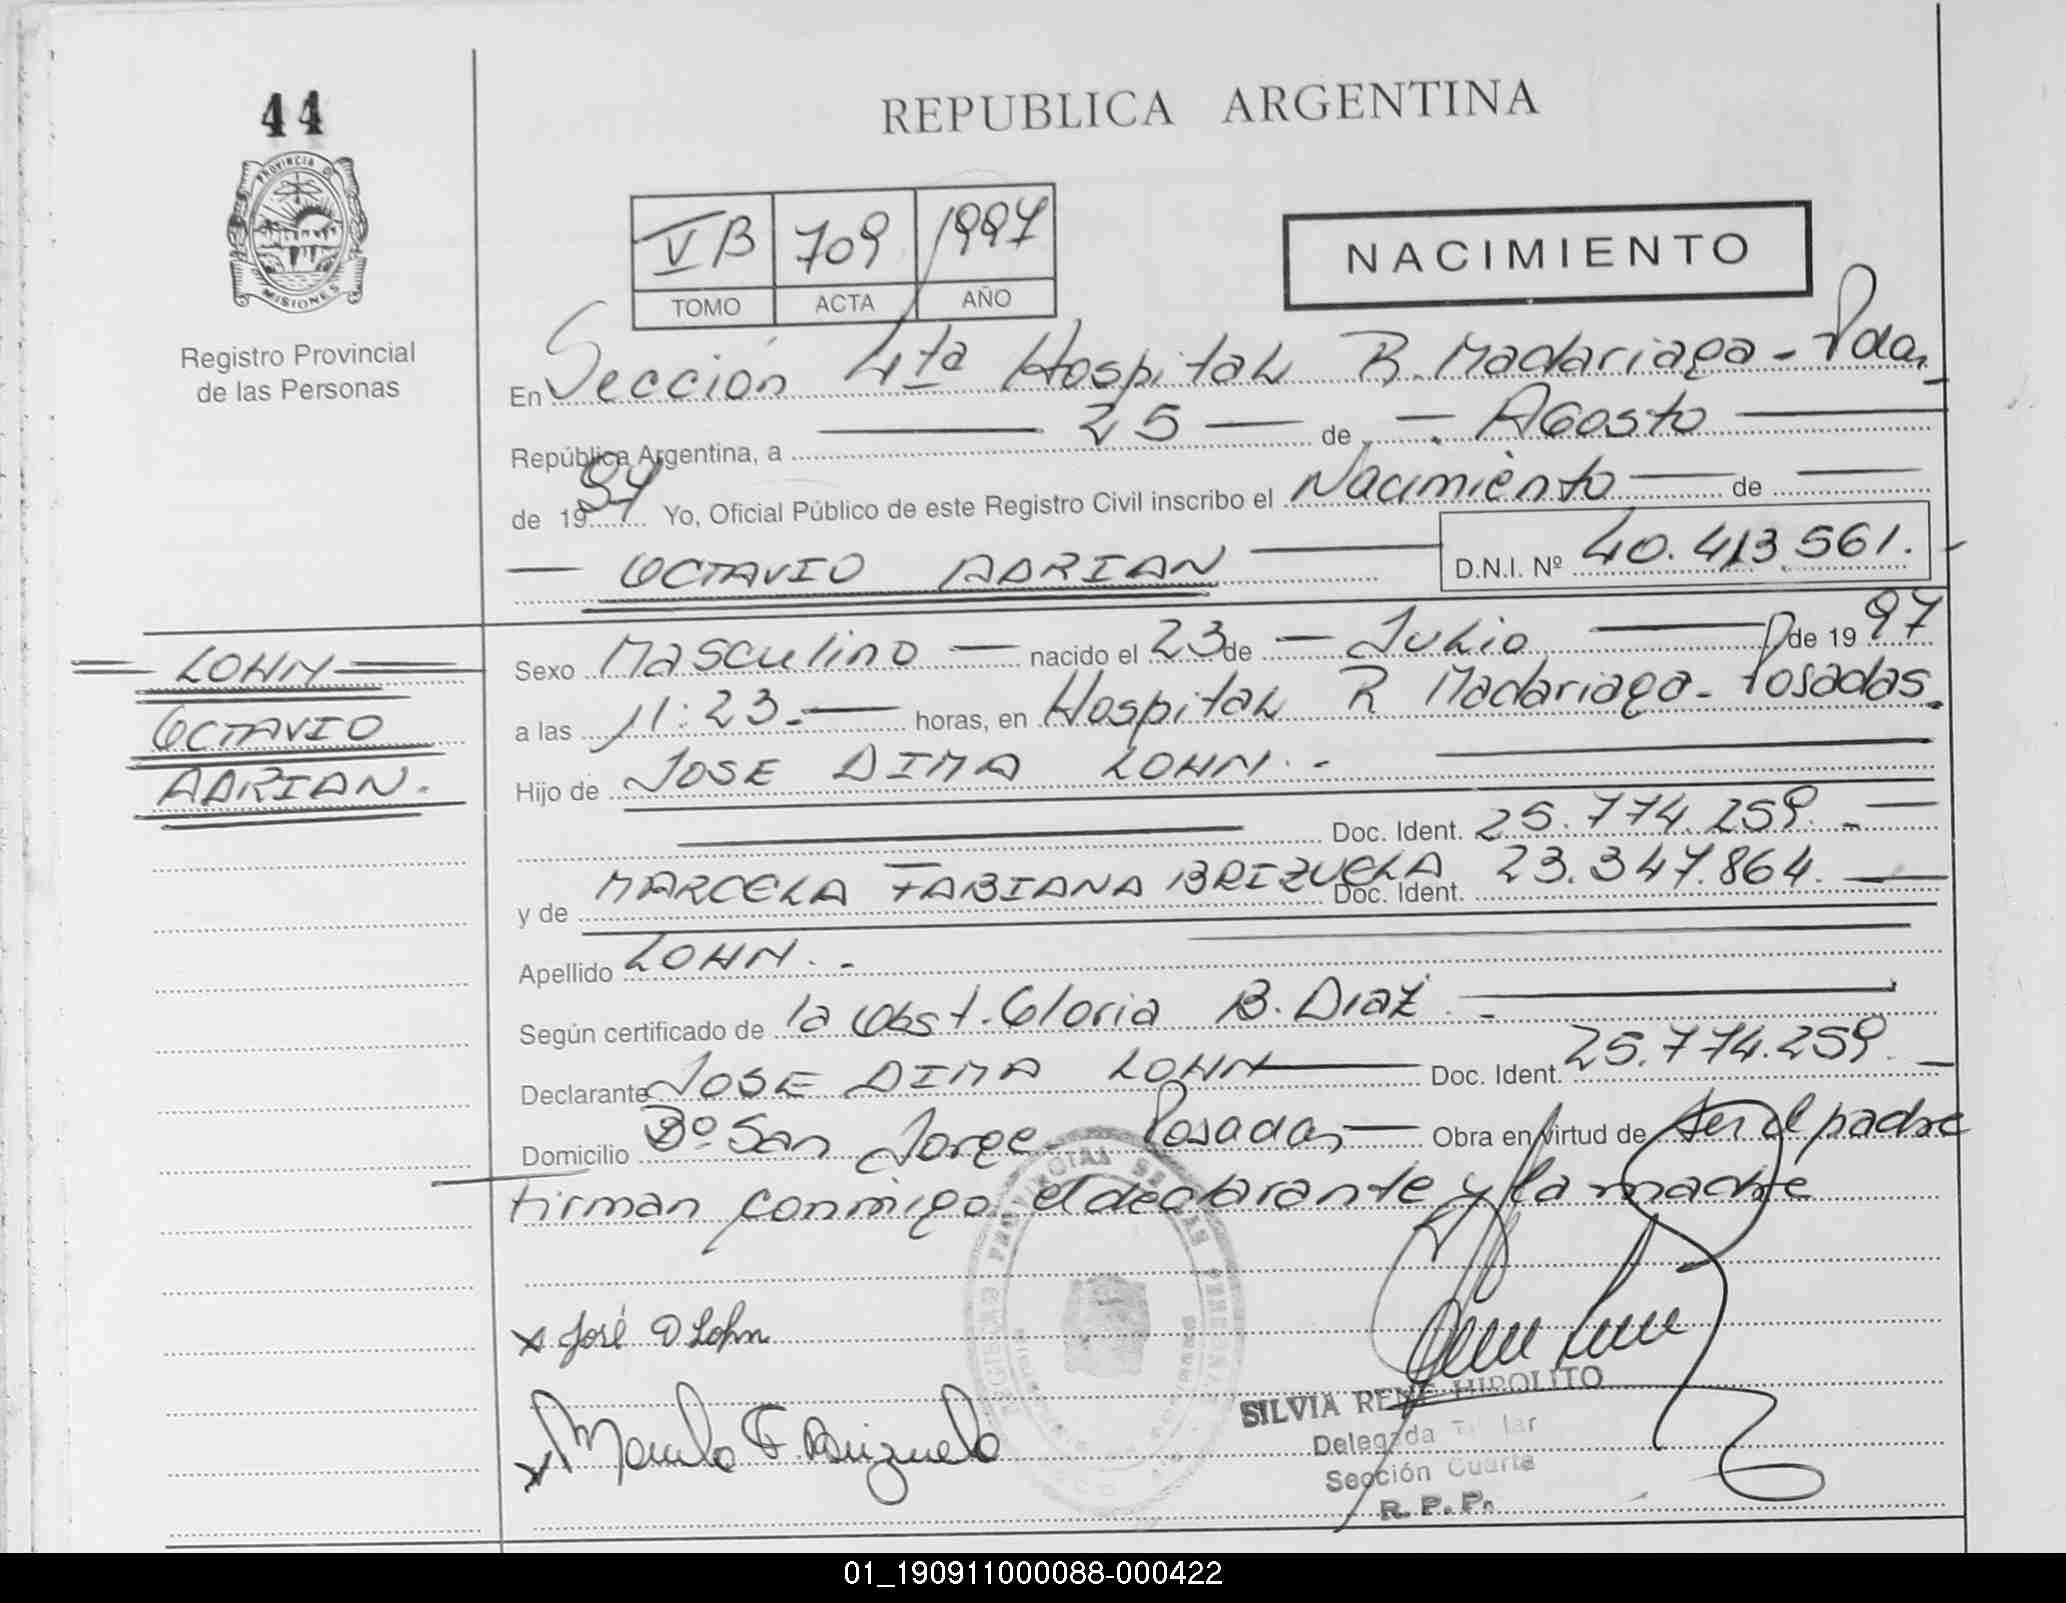 44
PROVINCIA DE
MISIONES
Registro Provincial
de las Personas
REPUBLICA ARGENTINA
V B 709 1997
TOMO ACTA AÑO
NACIMIENTO
En Sección 4ta Hospital R. Madariaga - Pdas
República Argentina, a 25 de Agosto
de 1997 Yo, Oficial Público de este Registro Civil inscribo el Nacimiento de
OCTAVIO ADRIAN D.N.I. Nº 40.413.561.
LOHN
OCTAVIO
ADRIAN.
Sexo Masculino nacido el 23 de Julio de 1997
a las 11:23.- horas, en Hospital R Madariaga - Posadas.
Hijo de JOSE DIMA LOHN.-
Doc. Ident. 25.774.259.-
y de MARCELA FABIANA BRIZUELA Doc. Ident. 23.347.864.
Apellido LOHN.-
Según certificado de la Obst. Gloria B. Diaz.-
Declarante JOSE DIMA LOHN Doc. Ident. 25.774.259.-
Domicilio Bº San Jorge Posadas Obra en virtud de ser el padre
firman conmigo el declarante y la madre
x José D Lohn
x Marcela F. Brizuela
SILVIA RENE HIPOLITO
Delegada Titular
Sección Cuarta
R. P. P.
01_190911000088-000422